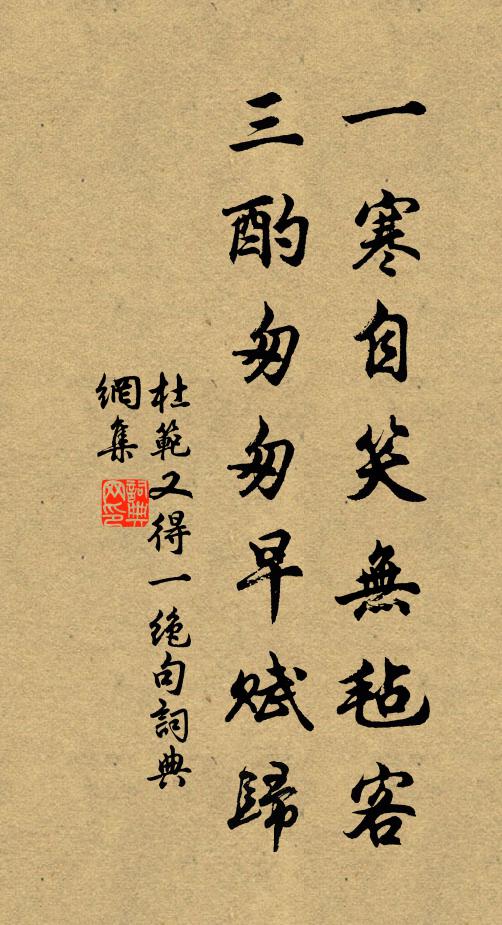 一寒自笑無毡客
三酌匆匆早賦歸
杜範又得一絕句詞典
網集
詞典網印